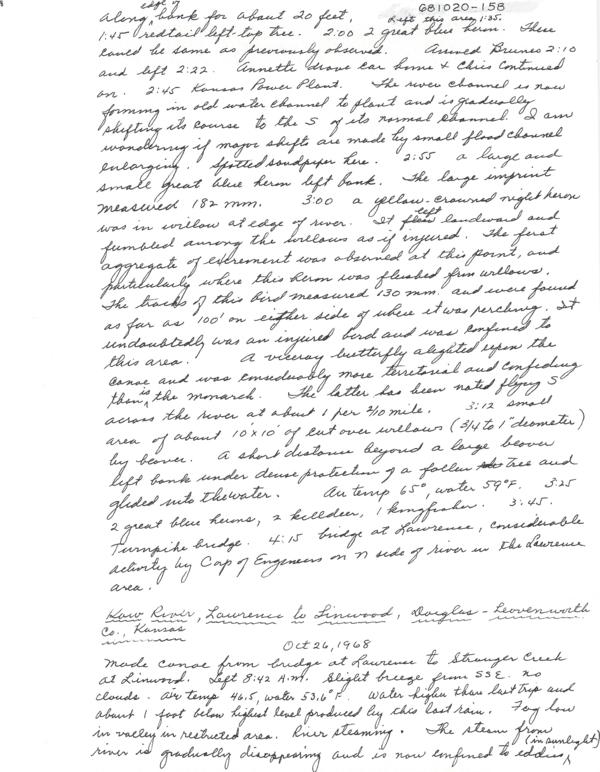 681020-158
edge of
along bank for about 20 feet. Left this area 1:35.
1:45 redtail left top tree. 2:00 2 great blue heron. These
could be same as previously observed. Arrived Brunes 2:10
and left 2:22. Annette drove car home & Chris continued
on. 2:45 Kansas Power Plant. The river channel is now
forming in old water channel to plant and is gradually
shifting its course to the S of its normal channel. I am
wondering if major shifts are made by small flood channel
enlarging. Spotted sandpiper here. 2:55 a large and
small great blue heron left bank. The large imprint
measured 182 mm. 3:00 a yellow-crowned night heron
was in willow at edge of river. It flew left landward and
fumbled among the willows as if injured. The first
aggregate of excrement was observed at this point, and
particularly where this heron was flushed from willows.
The tracks of this bird measured 130 mm. and were found
as far as 100' on either side of where it was perching. It
undoubtedly was an injured bird and was confined to
this area. A viceroy butterfly alighted upon the
canoe and was considerably more territorial and confiding
than is the monarch. The latter has been noted flying S
across the river at about 1 per 2/10 mile. 3:12 small
area of about 10'x10' of cut over willows (3/4 to 1" diameter)
by beaver. A short distance beyond a large beaver
left bank under dense protection of a fallen tree and
glided into the water. Air temp 65°, water 59°F. 3:25
2 great blue herons, 2 killdeer, 1 kingfisher. 3:45.
Turnpike bridge. 4:15 bridge at Lawrence, considerable
activity by Corp of Engineers on N side of river in the Lawrence
area.
Kaw River, Lawrence to Linwood, Douglas - Leavenworth
Co., Kansas
Oct 26, 1968
Made canoe from bridge at Lawrence to Stranger Creek
at Linwood. Left 8:42 A.M. Slight breeze from SSE. no
clouds. Air temp 46.5, water 53.6°F. Water higher than last trip and
about 1 foot below highest level produced by this last rain. Fog low
in valley in restricted area. River steaming. The steam from
river is gradually disappearing and is now confined to eddies (in sunlight)